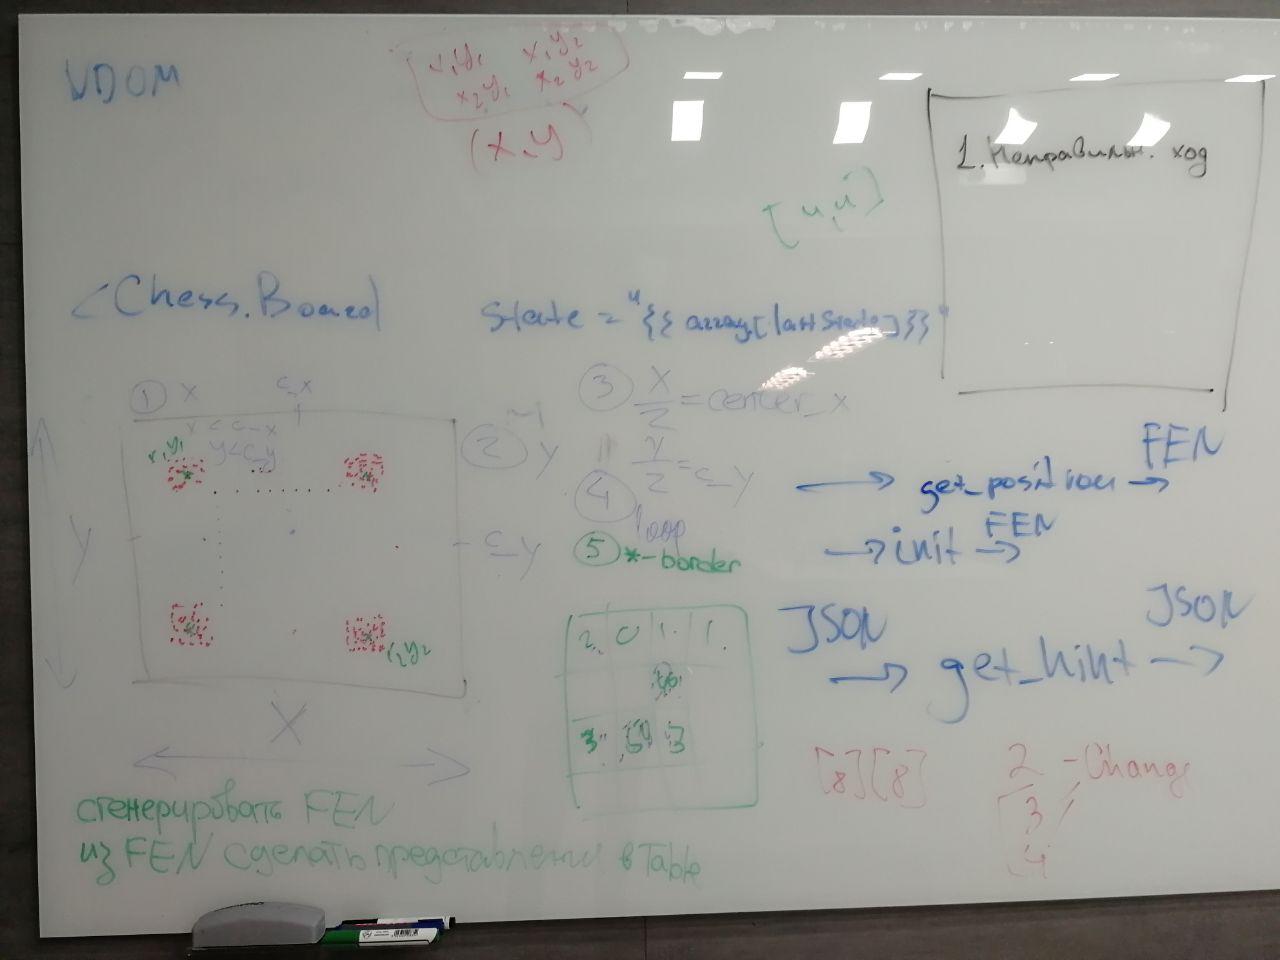 VDOM
x₁y₁ x₁y₂
x₂y₁ x₂y₂
(x,y)
1. Неправильн. ход
<Chess.Board state = "{{array[lastState]}}"
① x c_x
x < c_x
y < c_y
x₁y₁
② y
y
c_y
x₂y₂
X
③ x/2 = center_x
④ y/2 = c_y
loop
⑤ *-border
2 0 1 1
3 3
FEN
→ get_position →
FEN
→ init →
JSON JSON
→ get_hint →
[8][8]
2 - Change
3
4
сгенерировать FEN
из FEN сделать представления в Table